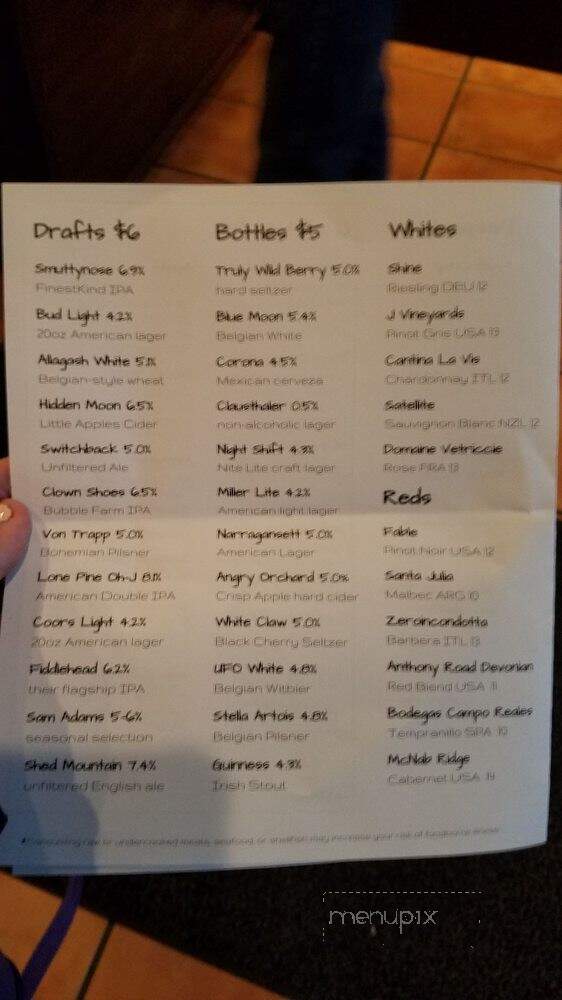 Drafts $6
Smuttynose 6.9%
FinestKind IPA
Bud Light 4.2%
20oz American lager
Allagash White 5.1%
Belgian-style wheat
Hidden Moon 6.5%
Little Apples Cider
Switchback 5.0%
Unfiltered Ale
Clown Shoes 6.5%
Bubble Farm IPA
Von Trapp 5.0%
Bohemian Pilsner
Lone Pine Oh-J 8.1%
American Double IPA
Coors Light 4.2%
20oz American lager
Fiddlehead 6.2%
their flagship IPA
Sam Adams 5-6%
seasonal selection
Shed Mountain 7.4%
unfiltered English ale
Bottles $5
Truly Wild Berry 5.0%
hard seltzer
Blue Moon 5.4%
Belgian White
Corona 4.5%
Mexican cerveza
Clausthaler 0.5%
non-alcoholic lager
Night Shift 4.3%
Nite Lite craft lager
Miller Lite 4.2%
American light lager
Narragansett 5.0%
American Lager
Angry Orchard 5.0%
Crisp Apple hard cider
White Claw 5.0%
Black Cherry Seltzer
UFO White 4.8%
Belgian Witbier
Stella Artois 4.8%
Belgian Pilsner
Guinness 4.3%
Irish Stout
Whites
Shine
Riesling DEU 12
J Vineyards
Pinot Gris USA 13
Cantina La Vis
Chardonnay ITL 12
Satellite
Sauvignon Blanc NZL 12
Domaine Vetriccie
Rose FRA 13
Reds
Fable
Pinot Noir USA 12
Santa Julia
Malbec ARG 10
Zeroincondotta
Barbera ITL 13
Anthony Road Devonian
Red Blend USA 11
Bodegas Campo Reales
Tempranillo SPA 10
McNab Ridge
Cabernet USA 14
*Consuming raw or undercooked meats, seafood, or shellfish may increase your risk of foodborne illness
menupix